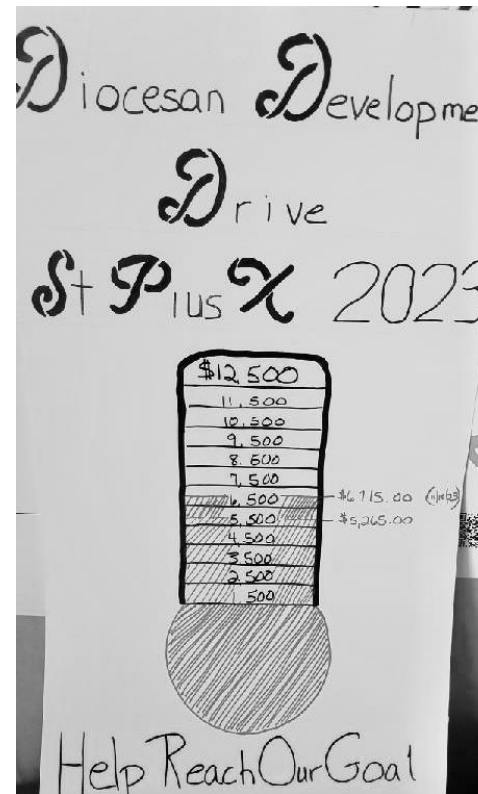 Diocesan Developme
Drive
St Pius X 2023
$12,500
11,500
10,500
9,500
8,500
7,500
6,500
5,500
$5,265.00
4,500
3,500
2,500
1,500
Help Reach Our Goal